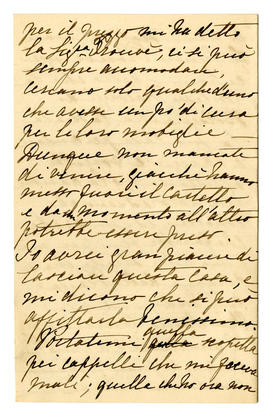 per il prezzo mi ha detto
la Sigra Prouvé, ci si può
sempre accomodare,
cercano solo qualcheduno
che avesse un po' di cura
per le loro mobiglie —
Dunque non mancate
di venire, giacchè hanno
messo fuori il cartello
e da un momento all'altro
potrebbe essere preso.
Io avrei gran piacere di
lasciare questa casa, e
mi dicono che si può
affittarla benissimo
Portatemi quella
pei cappelli che mi
mali; quelle che ho ora non